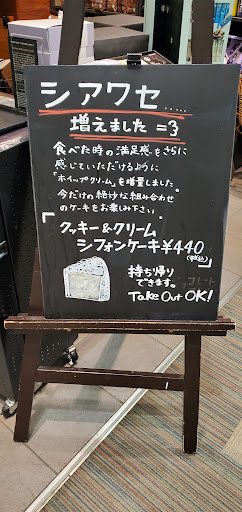 シアワセ.....
増えました =3
食べた時の満足感をさらに
感じていただけるように
「ホイップクリーム」を増量しました。
今だけの絶妙な組み合わせ
のケーキをお楽しみ下さい。
「クッキー&クリーム
シフォンケーキ¥440」
(税込)
持ち帰り
できます。
Take Out OK!